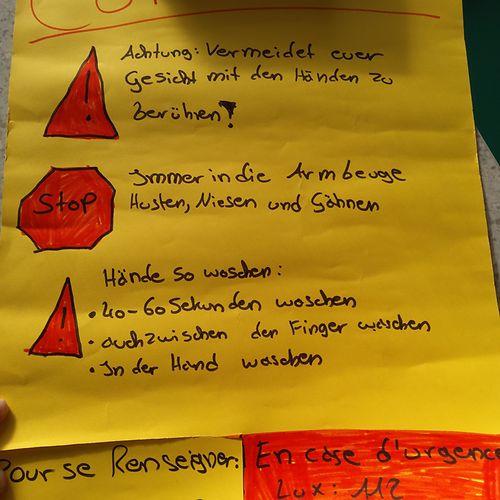 Achtung: Vermeidet euer
Gesicht mit den Händen zu
berühren!
STOP
Immer in die Armbeuge
Husten, Niesen und Gähnen
Hände so waschen:
• 40-60 Sekunden waschen
• auch zwischen den Finger waschen
• In der Hand waschen
Pour se Renseigner:
En case d'urgence
Lux: 112